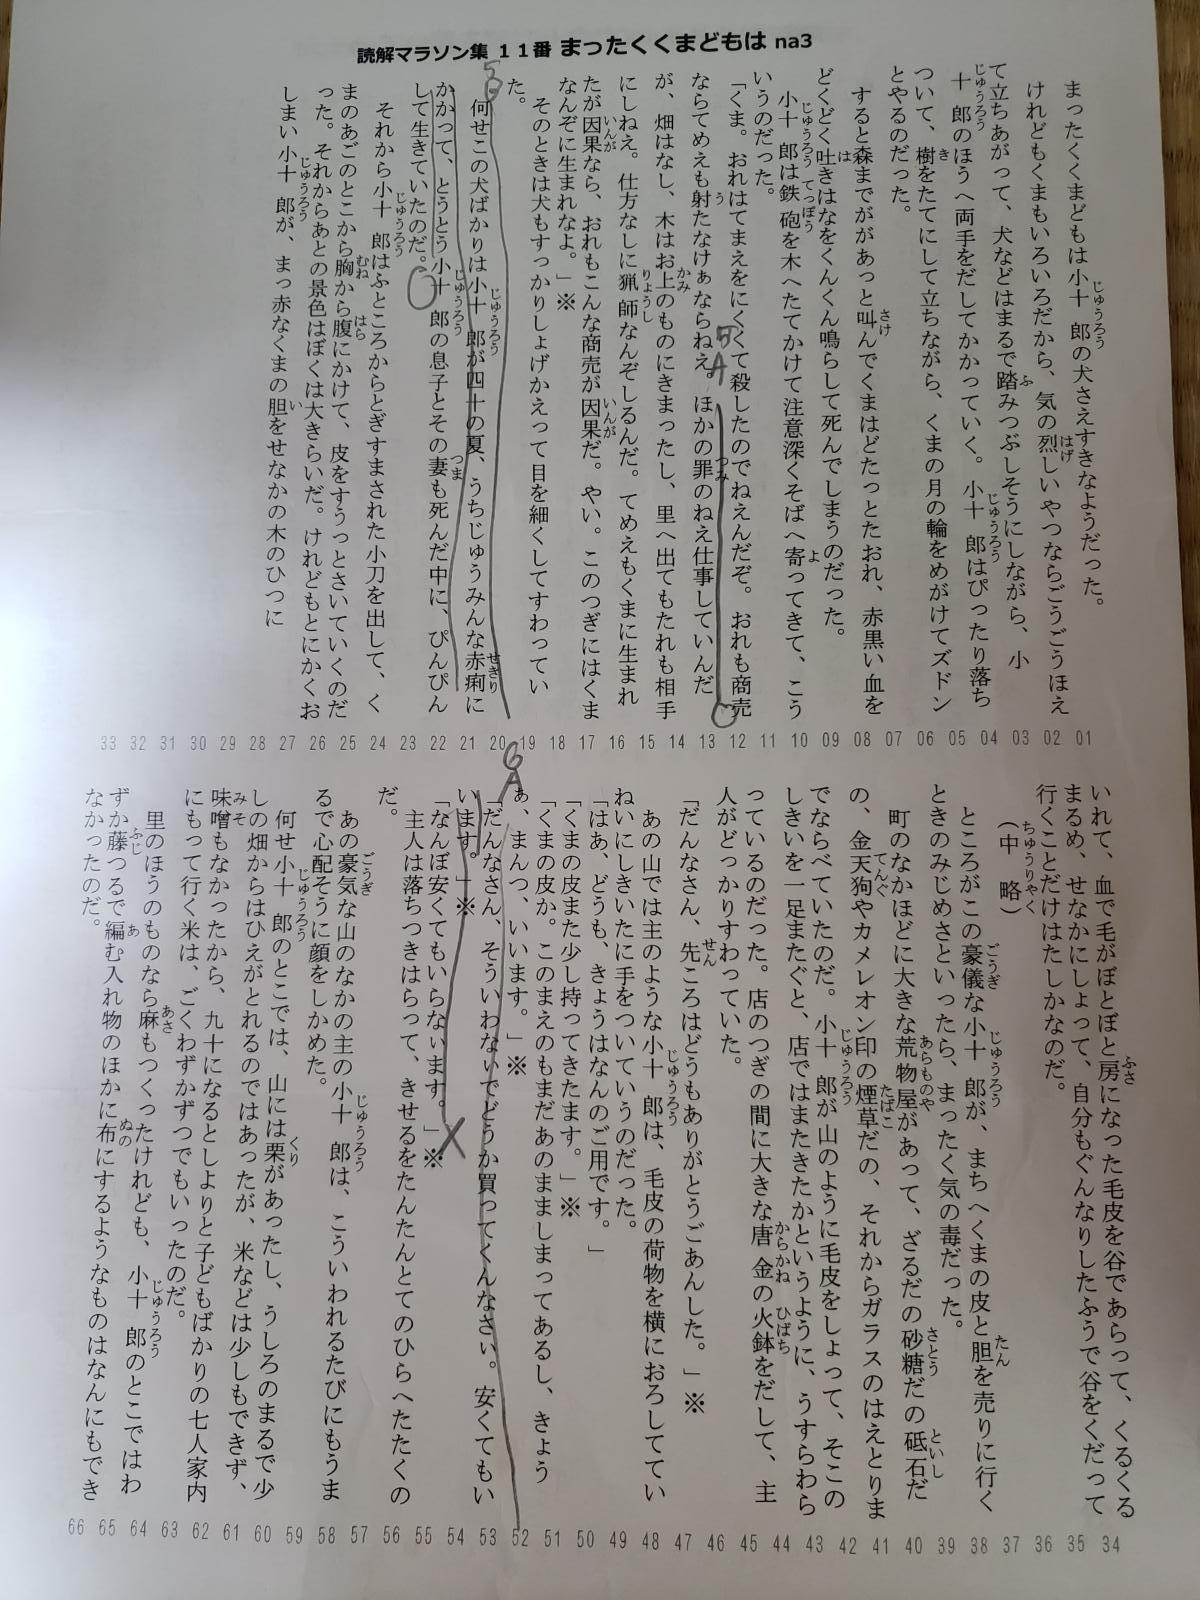 読解マラソン集 11番 まったくくまどもは na3
まったくくまどもは小十郎の犬さえすきなようだった。
けれどもくまもいろいろだから、気の烈しいやつならごうごうほえ
て立ちあがって、犬などはまるで踏みつぶしそうにしながら、小
十郎のほうへ両手をだしてかかっていく。小十郎はぴったり落ち
ついて、樹をたてにして立ちながら、くまの月の輪をめがけてズドン
とやるのだった。
すると森までががあっと叫んでくまはどたっとたおれ、赤黒い血を
どくどく吐きはなをくんくん鳴らして死んでしまうのだった。
小十郎は鉄砲を木へたてかけて注意深くそばへ寄ってきて、こう
いうのだった。
「くま。おれはてまえをにくくて殺したのでねえんだぞ。おれも商売
ならてめえも射たなけぁならねえ。ほかの罪のねえ仕事していんだ
が、畑はなし、木はお上のものにきまったし、里へ出てもたれも相手
にしねえ。仕方なしに猟師なんぞしるんだ。てめえもくまに生まれ
たが因果なら、おれもこんな商売が因果だ。やい。このつぎにはくま
なんぞに生まれなよ。」※
そのときは犬もすっかりしょげかえって目を細くしてすわってい
た。
何せこの犬ばかりは小十郎が四十の夏、うちじゅうみんな赤痢に
かかって、とうとう小十郎の息子とその妻も死んだ中に、ぴんぴん
して生きていたのだ。
それから小十郎はふところからとぎすまされた小刀を出して、く
まのあごのとこから胸から腹にかけて、皮をすうっとさいていくのだ
った。それからあとの景色はぼくは大きらいだ。けれどもとにかくお
しまい小十郎が、まっ赤なくまの胆をせなかの木のひつに
01 02 03 04 05 06 07 08 09 10 11 12 13 14 15 16 17 18 19 20 21 22 23 24 25 26 27 28 29 30 31 32 33
いれて、血で毛がぼとぼと房になった毛皮を谷であらって、くるくる
まるめ、せなかにしょって、自分もぐんなりしたふうで谷をくだって
行くことだけはたしかなのだ。
(中略)
ところがこの豪儀な小十郎が、まちへくまの皮と胆を売りに行く
ときのみじめさといったら、まったく気の毒だった。
町のなかほどに大きな荒物屋があって、ざるだの砂糖だの砥石だ
の、金天狗やカメレオン印の煙草だの、それからガラスのはえとりま
でならべていたのだ。小十郎が山のように毛皮をしょって、そこの
しきいを一足またぐと、店ではまたきたかというように、うすらわら
っているのだった。店のつぎの間に大きな唐金の火鉢をだして、主
人がどっかりすわっていた。
「だんなさん、先ころはどうもありがとうごあんした。」※
あの山では主のような小十郎は、毛皮の荷物を横におろしててい
ねいにしきいたに手をついていうのだった。
「はあ、どうも、きょうはなんのご用です。」
「くまの皮また少し持ってきたます。」※
「くまの皮か。このまえのもまだあのまましまってあるし、きょう
ぁ、まんつ、いいます。」※
「だんなさん、そういわないでどうか買ってくんなさい。安くてもい
います。」※
「なんぼ安くてもいらないます。」※
主人は落ちつきはらって、きせるをたんたんとてのひらへたたくの
だ。
あの豪気な山のなかの主の小十郎は、こういわれるたびにもうま
るで心配そうに顔をしかめた。
何せ小十郎のとこでは、山には栗があったし、うしろのまるで少
しの畑からはひえがとれるのではあったが、米などは少しもできず、
味噌もなかったから、九十になるとしよりと子どもばかりの七人家内
にもって行く米は、ごくわずかずつでもいったのだ。
里のほうのものなら麻もつくったけれども、小十郎のとこではわ
ずか藤つるで編む入れ物のほかに布にするようなものはなんにもでき
なかったのだ。
34 35 36 37 38 39 40 41 42 43 44 45 46 47 48 49 50 51 52 53 54 55 56 57 58 59 60 61 62 63 64 65 66